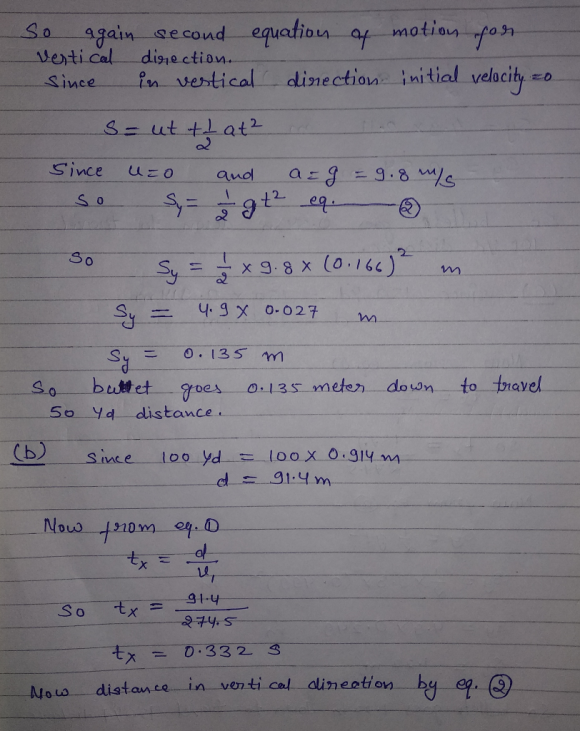 So again second equation of motion for
vertical direction.
Since in vertical direction initial velocity =0
S = ut + 1/2 at²
Since u=0 and a=g = 9.8 m/s
So Sy = 1/2 gt² eq. ②
So Sy = 1/2 x 9.8 x (0.166)² m
Sy = 4.9 x 0.027 m
Sy = 0.135 m
So bullet goes 0.135 meter down to travel
50 Yd distance.
(b) Since 100 Yd = 100 X 0.914 m
d = 91.4 m
Now from eq. ①
tx = d/u₁
So tx = 91.4/274.5
tx = 0.332 s
Now distance in vertical direction by eq. ②